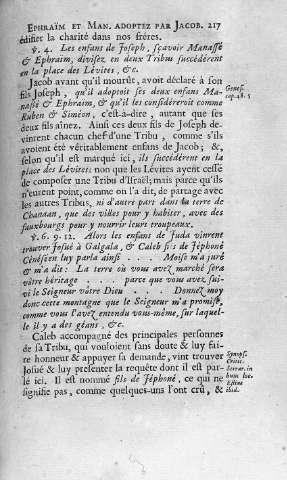 EPHRAÏM ET MAN. ADOPTEZ PAR JACOB. 217
édifier la charité dans nos freres.
℣. 4. Les enfans de Joseph, sçavoir Manassé
& Ephraïm, divisez en deux Tribus succédérent
en la place des Lévites, &c.
Jacob avant qu'il mourût, avoit déclaré à son
fils Joseph, qu'il adoptoit ses deux enfans Ma-
nassé & Ephraïm, & qu'il les considéreroit comme
Ruben & Siméon, c'est-à-dire, autant que ses
deux fils aînez. Ainsi ces deux fils de Joseph de-
vinrent chacun chef d'une Tribu, comme s'ils
avoient été véritablement enfans de Jacob; &,
selon qu'il est marqué ici, ils succédérent en la
place des Lévites: non que les Lévites ayent cessé
de composer une Tribu d'Israël; mais parce qu'ils
n'eurent point, comme on l'a dit, de partage avec
les autres Tribus, ni d'autre part dans la terre de
Chanaan, que des villes pour y habiter, avec des
fauxbourgs pour y nourrir leurs troupeaux.
℣. 6. 9. 12. Alors les enfans de Juda vinrent
trouver Josué à Galgala, & Caleb fils de Jéphoné
Cénéséen luy parla ainsi . . . . Moïse m'a juré
& m'a dit: La terre où vous avez marché sera
vôtre héritage . . . . parce que vous avez sui-
vi le Seigneur vôtre Dieu . . . . Donnez moy
donc cette montagne que le Seigneur m'a promise,
comme vous l'avez entendu vous-même, sur laquel-
le il y a des géans, &c.
Caleb accompagné des principales personnes
de sa Tribu, qui vouloient sans doute & luy fai-
re honneur & appuyer sa demande, vint trouver
Josué & luy presenter la requête dont il est par-
lé ici. Il est nommé fils de Jéphoné, ce qui ne
signifie pas, comme quelques-uns l'ont crû, &
Genes.
cap. 48. 5
Synops.
Critic.
Serrar. in
hunc loc.
Estius
ibid.